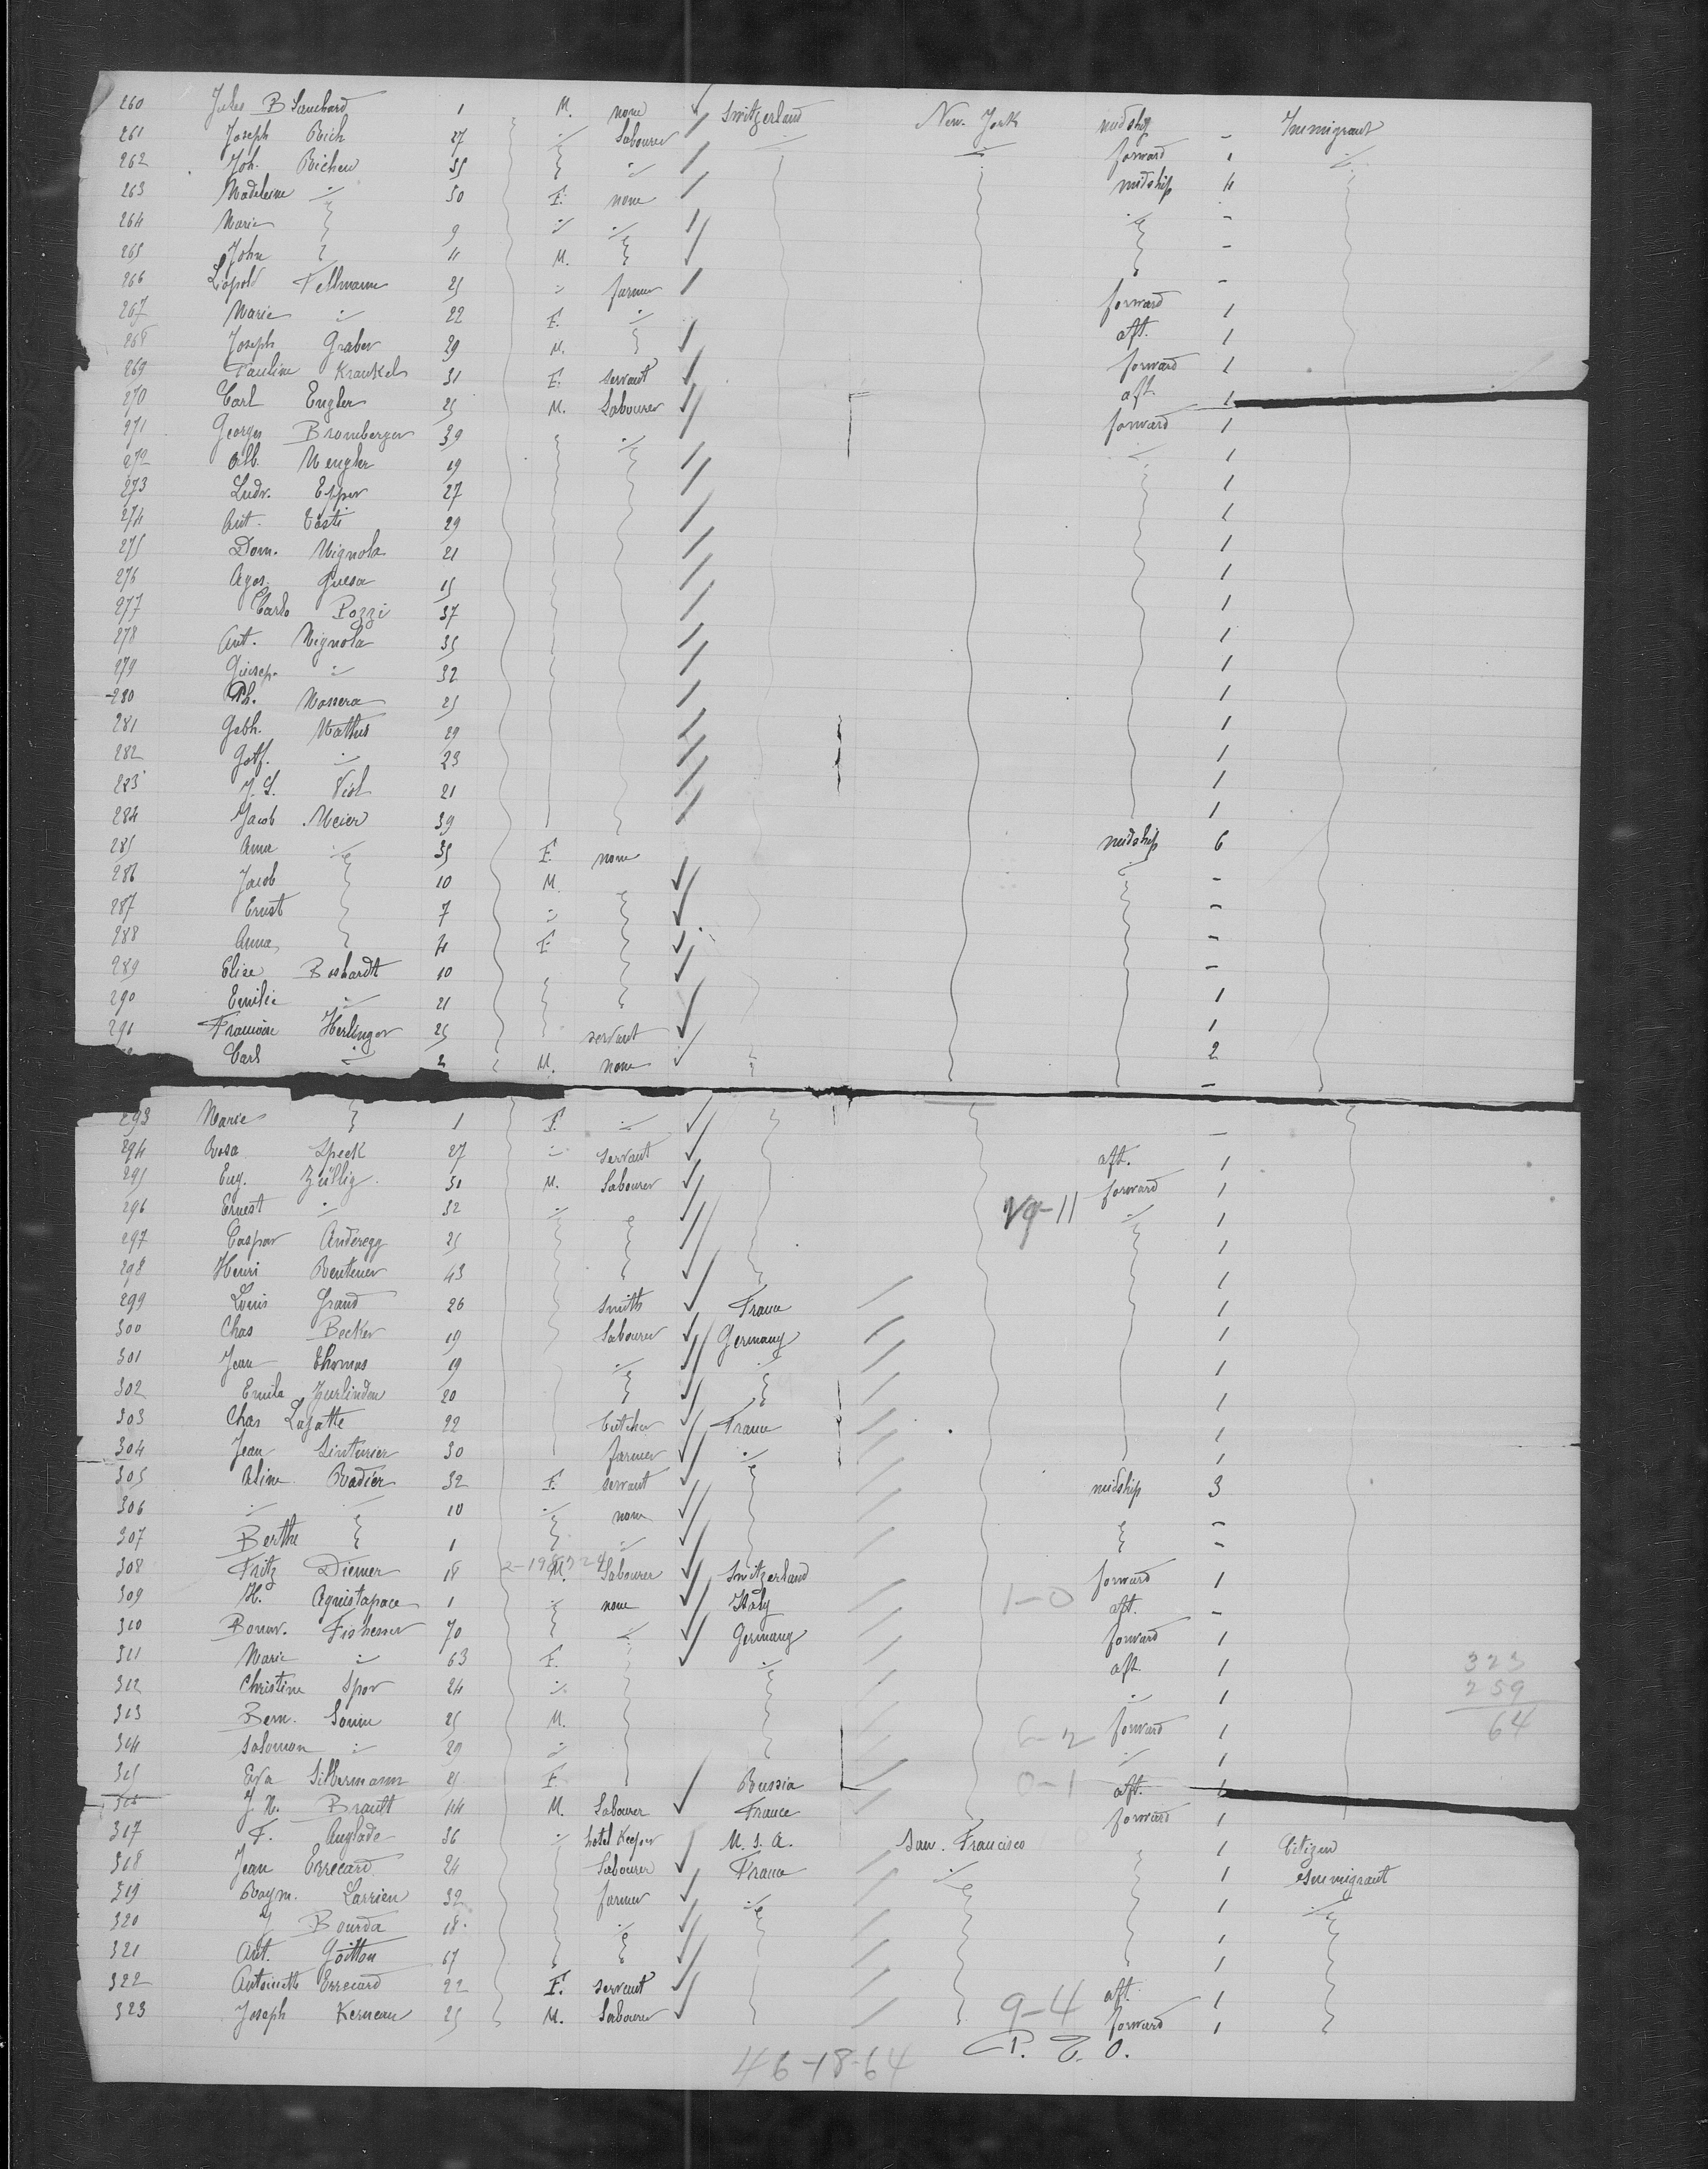 260 Jules Blanchard 1 M. none Switzerland New-York midship - Immigrant
261 Joseph Bich 27 〃 Labourer 〃 〃 forward 1 〃
262 Joh. Bichen 35 〃 midship 4
263 Madeleine 〃 50 F. none 〃 -
264 Marie 9 〃 〃 -
265 John 11 M. -
266 Leopold Fellmann 25 〃 farmer forward 1
267 Marie 〃 22 F. 〃 aft. 1
268 Joseph Graber 29 M. forward 1
269 Pauline Krankel 31 F. servant aft 1
270 Carl Engler 25 M. Labourer forward 1
271 Georges Bromberger 39 〃 〃 1
272 Alb. Wengler 19 1
273 Ludv. Epper 27 1
274 Ant. Tosti 29 1
275 Dom. Mignola 21 1
276 Agos. 15 1
277 Carlo Pozzi 37 1
278 Ant. Mignola 35 1
279 Guisep. 〃 32 1
280 Ph. Massera 25 1
281 Gobh. Mathis 29 1
282 Gotf. 〃 23 1
283 21 1
284 Jacob Meier 39 midship 6
285 Anna 〃 35 F. none 〃 -
286 Jacob 10 M. -
287 Ernst 7 〃 -
288 Anna 4 F. -
289 Elise Boshardt 10 1
290 Emilie 〃 21 1
291 Herlinger 25 servant 2
Carl 〃 2 M. none -
293 Marie 1 F. 〃 -
294 Rosa Speck 27 〃 servant aft. 1
295 Eug. Züllig 31 M. Labourer forward 1
296 Ernest 〃 32 〃 19-11 〃 1
297 Caspar Anderegg 25 1
298 Henri Rentener 43 1
299 Louis Grand 26 smith France 1
300 Chas Becker 19 Labourer Germany 1
301 Jean Thomas 19 〃 〃 1
302 Emile Zurlinden 20 1
303 Chas Lafatte 22 butcher France 1
304 Jean Sinturier 30 farmer 〃 1
305 Aline Radier 32 F. servant midship 3
306 〃 〃 10 〃 none -
307 Berthe 1 〃 -
308 Fritz Diemer 18 M. Labourer Switzerland forward 1
309 H. Aquistapace 1 〃 none Italy 1-0 aft. -
310 70 〃 Germany forward 1
311 Marie 〃 63 F. 〃 aft 1 323
312 Christine Spor 24 〃 〃 1 259
313 Bern. 25 M. 6-2 forward 1 64
314 Salomon 〃 29 〃 〃 1
315 Eva Silbermann 21 F. Russia 0-1 aft. 1
316 J. N. Brault 44 M. Labourer France forward 1
317 F. Anglade 36 〃 hotel Keeper U.S.A. San. Francisco 1 Citizen
318 Jean Errecard 24 Labourer France 〃 1 Immigrant
319 Raym. Larrieu 32 farmer 〃 1 〃
320 J Bourda 18 〃 1
321 Ant. Goitton 67 1
322 Antoinette Errecard 22 F. servant aft. 1
323 Joseph Kerneau 25 M. Labourer 9-4 forward 1
P. T. O.
46-18-64